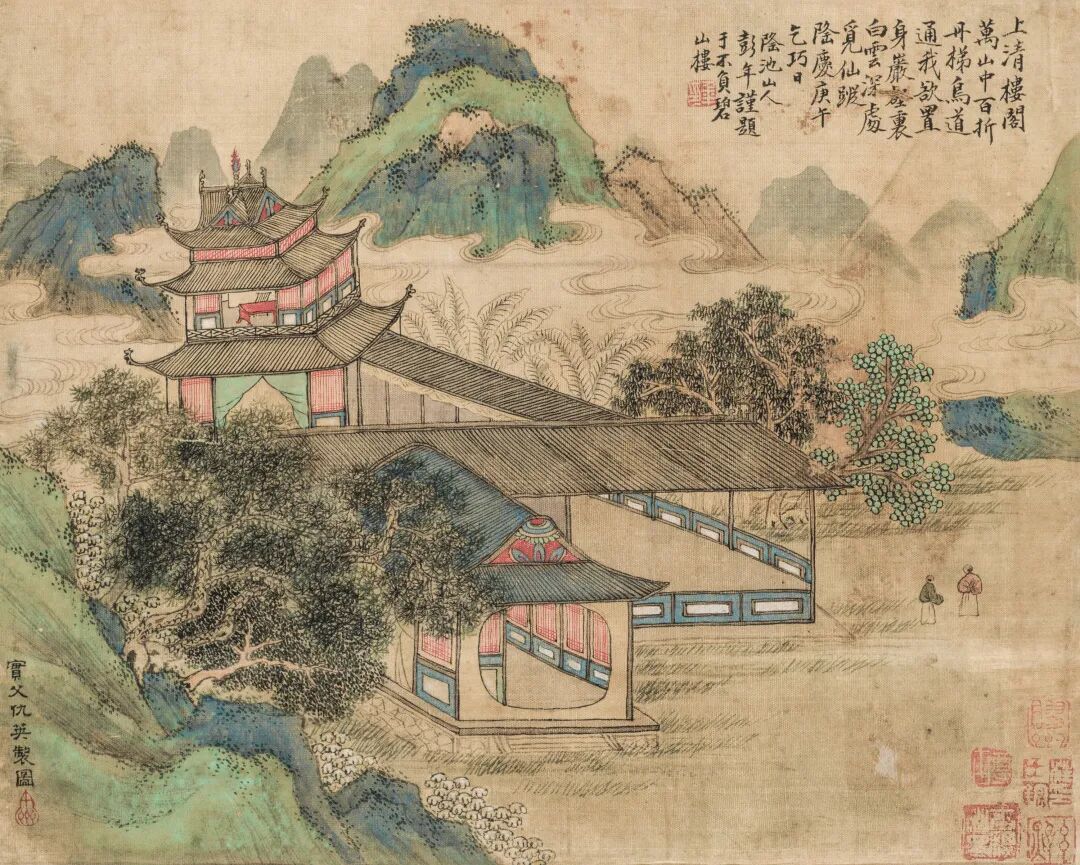 上清樓閣
萬山中百折
丹梯鳥道
通我欲置
身巖壑裏
白雲深處
覓仙蹤
隆慶庚午
乞巧日
隆池山人
彭年謹題
于不負碧
山樓
實父仇英製圖